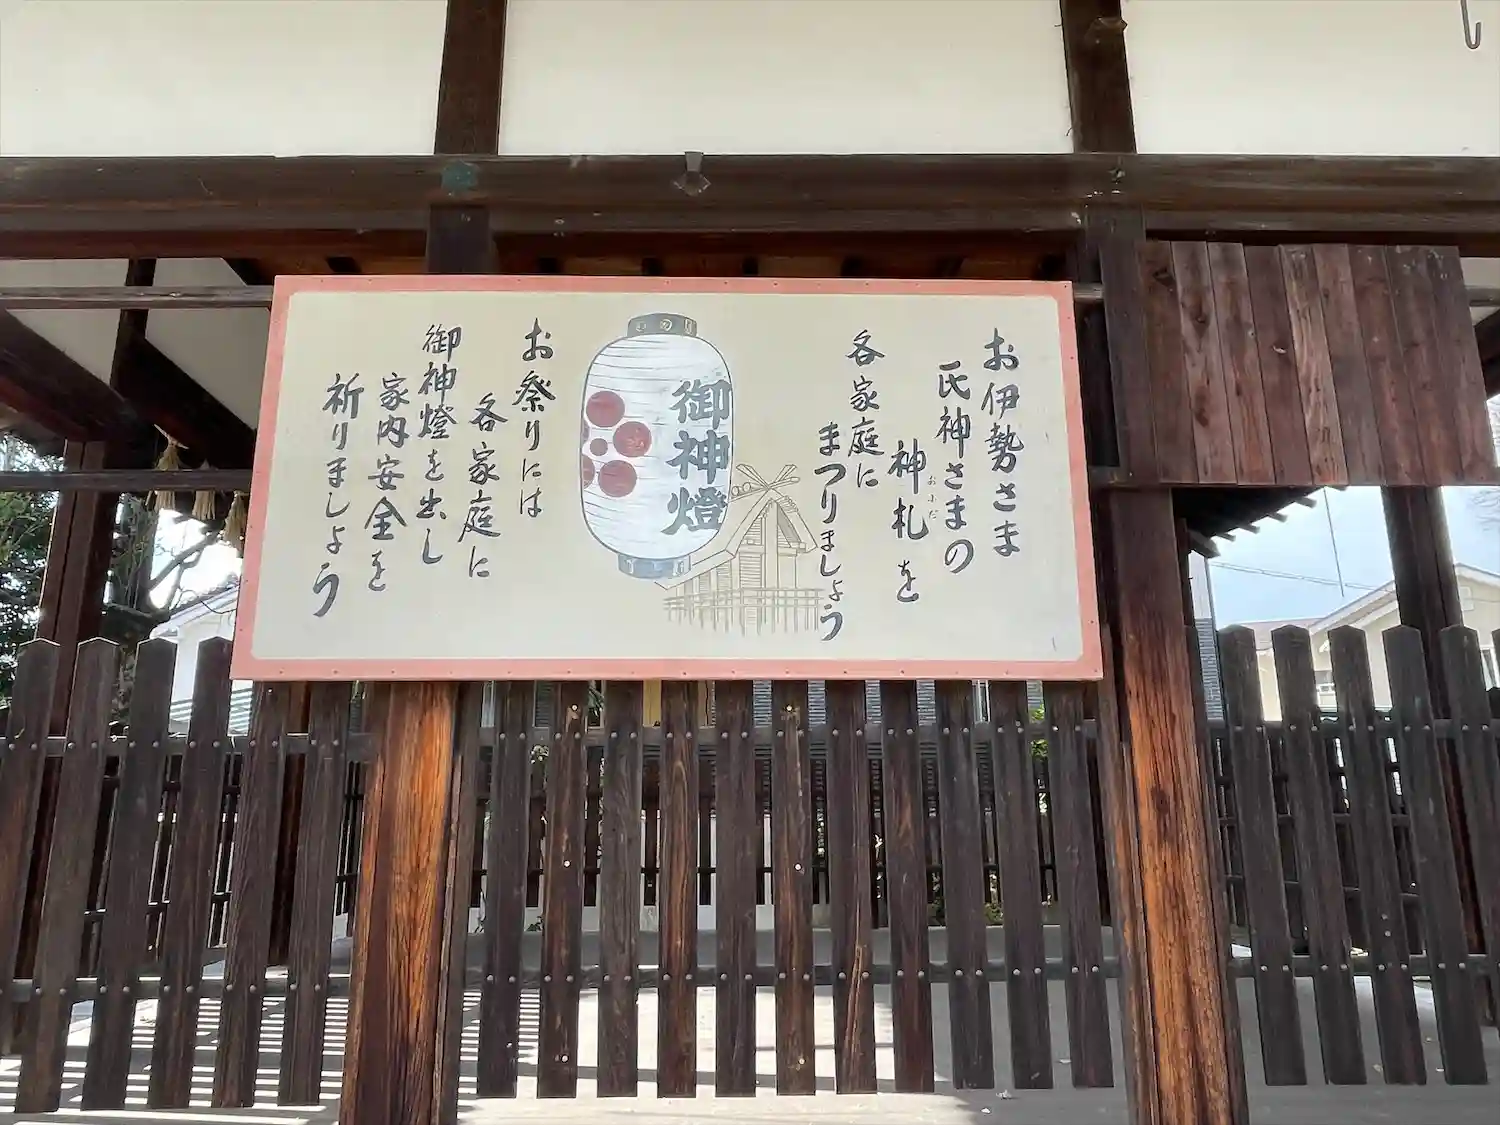 お伊勢さま
氏神さまの
神札を
おふだ
各家庭に
まつりましょう
御神燈
お祭りには
各家庭に
御神燈を出し
家内安全を
祈りましょう